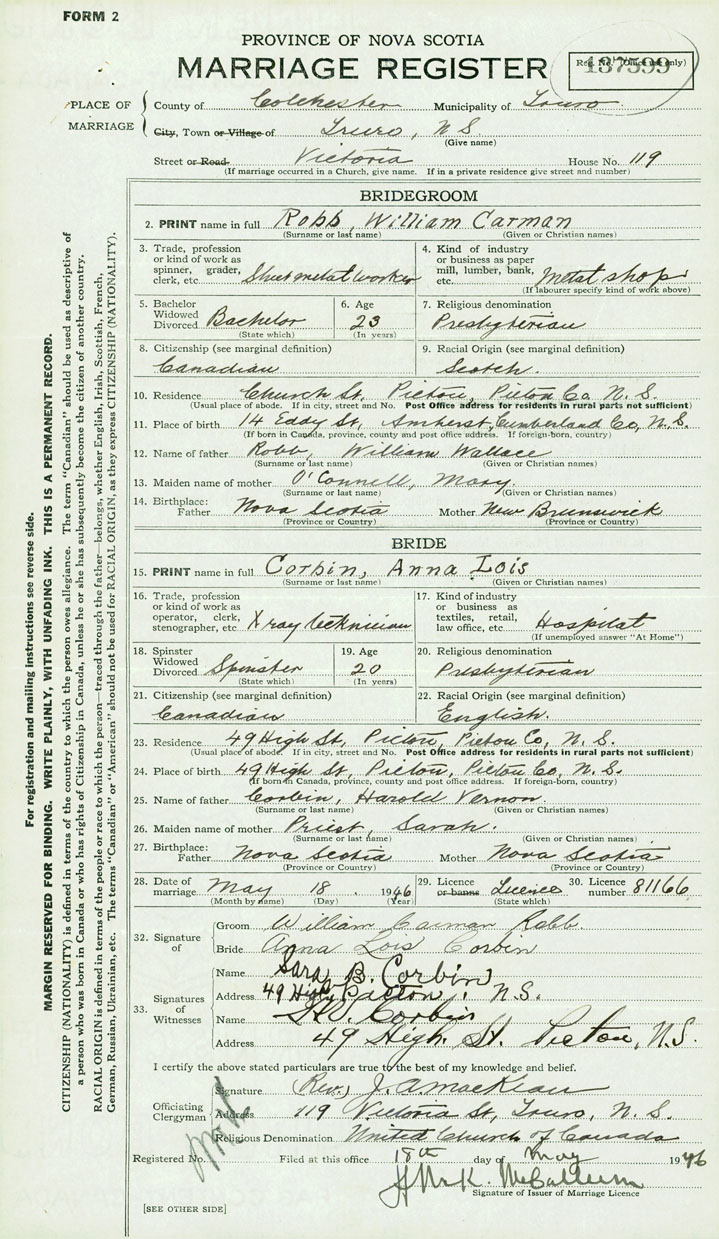 FORM 2
PROVINCE OF NOVA SCOTIA
MARRIAGE REGISTER
Reg. No. (Office use only)
PLACE OF MARRIAGE
County of Colchester Municipality of Truro
City, Town or Village of Truro, N.S.
(Give name)
Street or Road Victoria House No. 119
(If marriage occurred in a Church, give name. If in a private residence give street and number)
BRIDEGROOM
2. PRINT name in full Robb, William Carman
(Surname or last name) (Given or Christian names)
3. Trade, profession or kind of work as spinner, grader, clerk, etc. Sheet metal worker
4. Kind of industry or business as paper mill, lumber, bank, etc. Metal shop
(If labourer specify kind of work above)
5. Bachelor Widowed Divorced Bachelor
(State which)
6. Age 23
(In years)
7. Religious denomination
Presbyterian
8. Citizenship (see marginal definition)
Canadian
9. Racial Origin (see marginal definition)
Scotch.
10. Residence Church St. Pictou, Pictou Co, N. S.
(Usual place of abode. If in city, street and No. Post Office address for residents in rural parts not sufficient)
11. Place of birth 14 Eddy St, Amherst, Cumberland Co, N. S.
(If born in Canada, province, county and post office address. If foreign-born, country)
12. Name of father Robb, William Wallace
(Surname or last name) (Given or Christian names)
13. Maiden name of mother O'Connell, Mary.
(Surname or last name) (Given or Christian names)
14. Birthplace: Father Nova Scotia Mother New Brunswick
(Province or Country) (Province or Country)
BRIDE
15. PRINT name in full Corbin, Anna Lois
(Surname or last name) (Given or Christian names)
16. Trade, profession or kind of work as operator, clerk, stenographer, etc. X ray technician
17. Kind of industry or business as textiles, retail, law office, etc. Hospital
(If unemployed answer "At Home")
18. Spinster Widowed Divorced Spinster
(State which)
19. Age 20
(In years)
20. Religious denomination
Presbyterian
21. Citizenship (see marginal definition)
Canadian
22. Racial Origin (see marginal definition)
English.
23. Residence 49 High St, Pictou, Pictou Co, N. S.
(Usual place of abode. If in city, street and No. Post Office address for residents in rural parts not sufficient)
24. Place of birth 49 High St, Pictou, Pictou Co, N. S.
(If born in Canada, province, county and post office address. If foreign-born, country)
25. Name of father Corbin, Harold Vernon.
(Surname or last name) (Given or Christian names)
26. Maiden name of mother Priest, Sarah.
(Surname or last name) (Given or Christian names)
27. Birthplace: Father Nova Scotia Mother Nova Scotia
(Province or Country) (Province or Country)
28. Date of marriage May 18 1946
(Month by name) (Day) (Year)
29. Licence or banns Licence
(State which)
30. Licence number 81166
32. Signature of
Groom William Carman Robb.
Bride Anna Lois Corbin
33. Signatures of Witnesses
Name Sara B. Corbin
Address 49 High Pictou, N.S.
Name H.V. Corbin
Address 49 High. St. Pictou, N.S.
I certify the above stated particulars are true to the best of my knowledge and belief.
Officiating Clergyman
Signature (Rev.) J. A. MacKean
Address 119 Victoria St, Truro, N. S.
Religious Denomination United Church of Canada
Registered No. Filed at this office 18th day of May 1946
H McK. McCallum
Signature of Issuer of Marriage Licence
[SEE OTHER SIDE]
For registration and mailing instructions see reverse side.
MARGIN RESERVED FOR BINDING. WRITE PLAINLY, WITH UNFADING INK. THIS IS A PERMANENT RECORD.
CITIZENSHIP (NATIONALITY) is defined in terms of the country to which the person owes allegiance. The term "Canadian" should be used as descriptive of
a person who was born in Canada or who has rights of Citizenship in Canada, unless he or she has subsequently become the citizen of another country.
RACIAL ORIGIN is defined in terms of the people or race to which the person—traced through the father—belongs, whether English, Irish, Scottish, French,
German, Russian, Ukrainian, etc. The terms "Canadian" or "American" should not be used for RACIAL ORIGIN, as they express CITIZENSHIP (NATIONALITY).